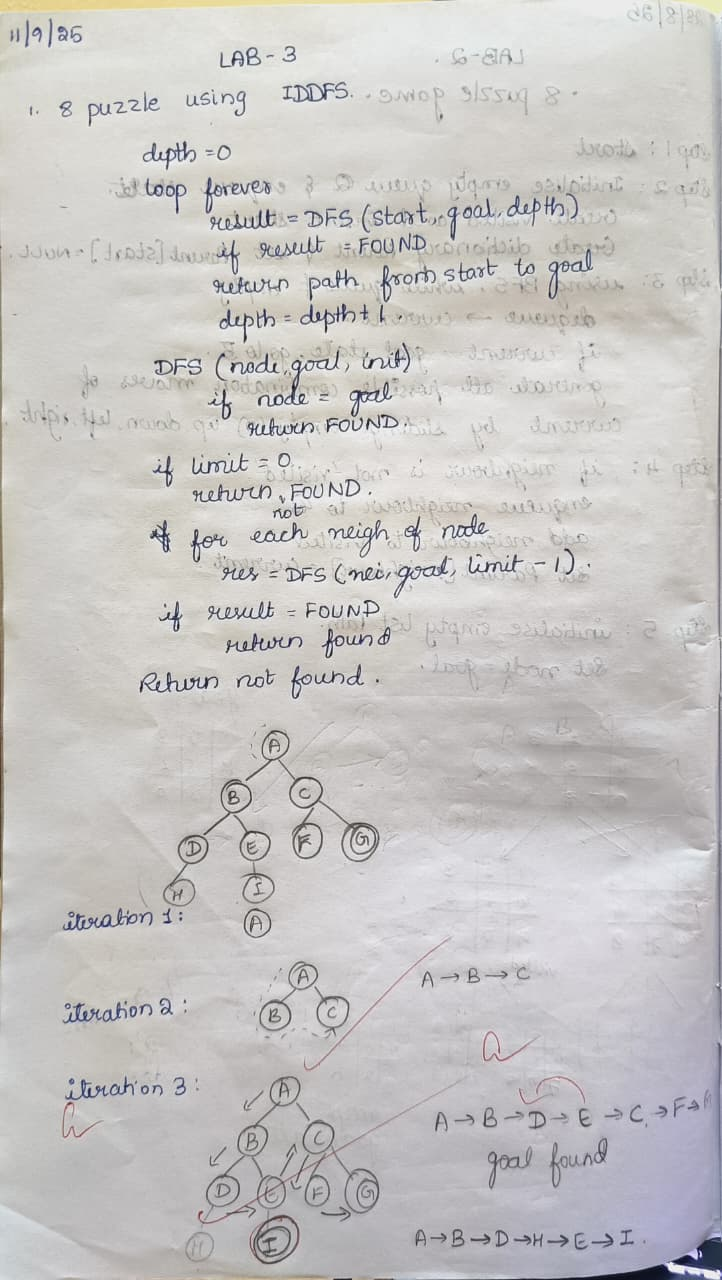 11/9/25
LAB-3
1. 8 puzzle using IDDFS.
depth = 0
loop forever
result = DFS (start, goal, depth)
if result = FOUND
return path from start to goal
depth = depth + 1.
DFS (node, goal, init)
if node = goal
return FOUND.
if limit = 0
return not FOUND.
for each neigh of node
res = DFS (nei, goal, limit - 1).
if result = FOUND
return found
Return not found.
A
B C
D E F G
H I
iteration 1: A
A
iteration 2: B C
A → B → C
iteration 3: A
B C
D E F G
H I
A → B → D → E → C → F →
goal found
A → B → D → H → E → I.